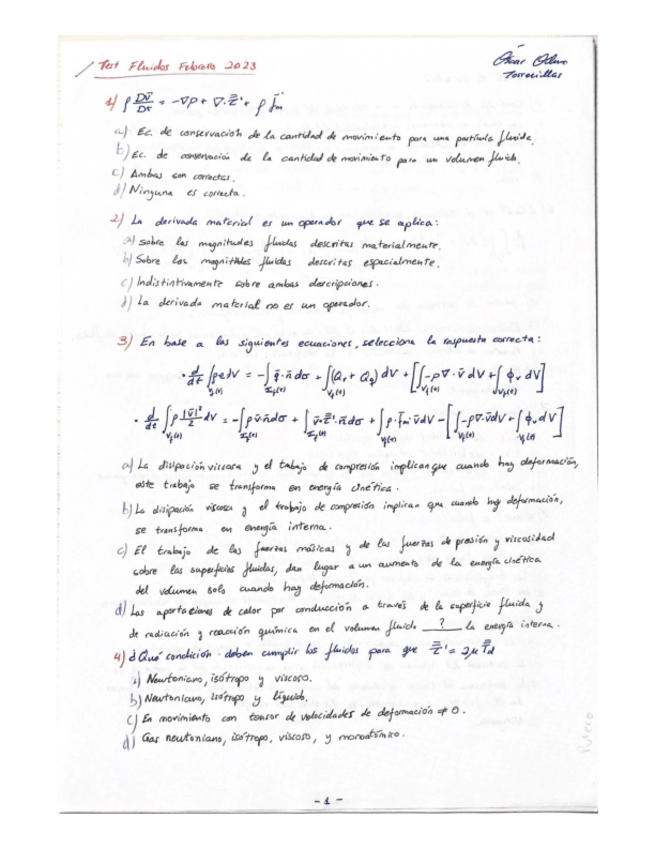 Test Fluidos Febrero 2023
Óscar Olmo
Torrecillas
1) ρ Dv̄/Dt = -∇p + ∇·τ̿' + ρ f̄m
a) Ec. de conservación de la cantidad de movimiento para una partícula fluida.
b) Ec. de conservación de la cantidad de movimiento para un volumen fluido.
c) Ambas son correctas.
d) Ninguna es correcta.
2) La derivada material es un operador que se aplica:
a) Sobre las magnitudes fluidas descritas materialmente.
b) Sobre las magnitudes fluidas descritas espacialmente.
c) Indistintivamente sobre ambas descripciones.
d) La derivada material no es un operador.
3) En base a las siguientes ecuaciones, selecciona la respuesta correcta:
· d/dt ∫Vf(t) ρe dV = -∫Σf(t) q̄·n̄ dσ + ∫Vf(t) (Qr + Qq) dV + [∫Vf(t) -p∇·v̄ dV + ∫Vf(t) ϕv dV]
· d/dt ∫Vf(t) ρ |v̄|²/2 dV = -∫Σf(t) p v̄·n̄ dσ + ∫Σf(t) v̄·τ̿'·n̄ dσ + ∫Vf(t) ρ·f̄m·v̄ dV - [∫Vf(t) -p∇·v̄ dV + ∫Vf(t) ϕv dV]
a) La disipación viscosa y el trabajo de compresión implican que cuando hay deformación,
este trabajo se transforma en energía cinética.
b) La disipación viscosa y el trabajo de compresión implican que cuando hay deformación,
se transforma en energía interna.
c) El trabajo de las fuerzas másicas y de las fuerzas de presión y viscosidad
sobre las superficies fluidas, dan lugar a un aumento de la energía cinética
del volumen solo cuando hay deformación.
d) Las aportaciones de calor por conducción a través de la superficie fluida y
de radiación y reacción química en el volumen fluido ___?___ la energía interna.
4) ¿Qué condición deben cumplir los fluidos para que τ̿' = 2μ T̿d
a) Newtoniano, isótropo y viscoso.
b) Newtoniano, isótropo y líquido.
c) En movimiento con tensor de velocidades de deformación ≠ 0.
d) Gas newtoniano, isótropo, viscoso, y monoatómico.
- 1 -